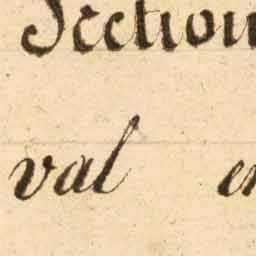 Section
val en